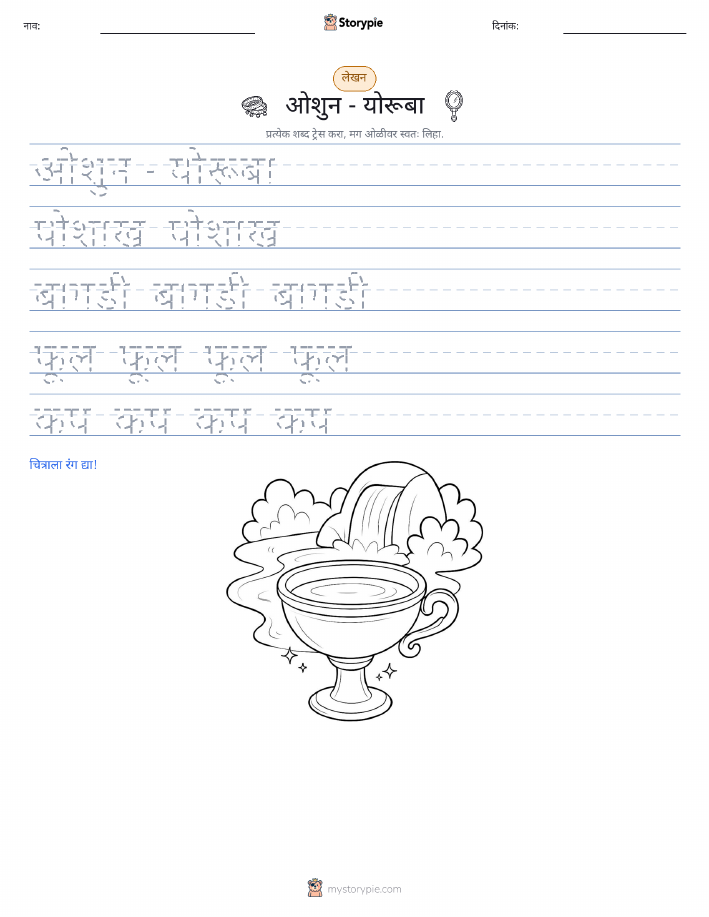 नाव:
Storypie
दिनांक:
लेखन
ओशुन - योरूबा
प्रत्येक शब्द ट्रेस करा, मग ओळीवर स्वतः लिहा.
ओशुन - योरूबा
पोशाख पोशाख
बांगडी बांगडी बांगडी
फूल फूल फूल फूल
कप कप कप कप
चित्राला रंग द्या!
mystorypie.com